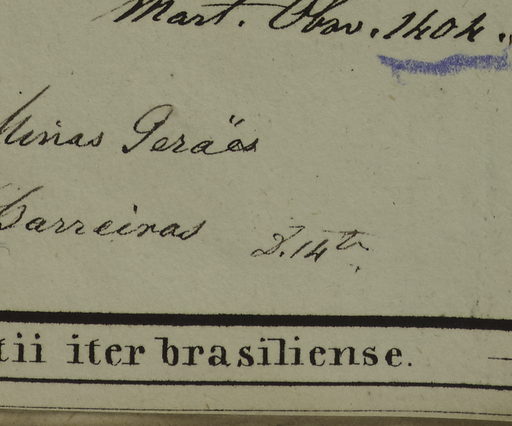 Mart. Obsv. 1404.
Minas Geraës
Carreiras D. 14te
tii iter brasiliense.